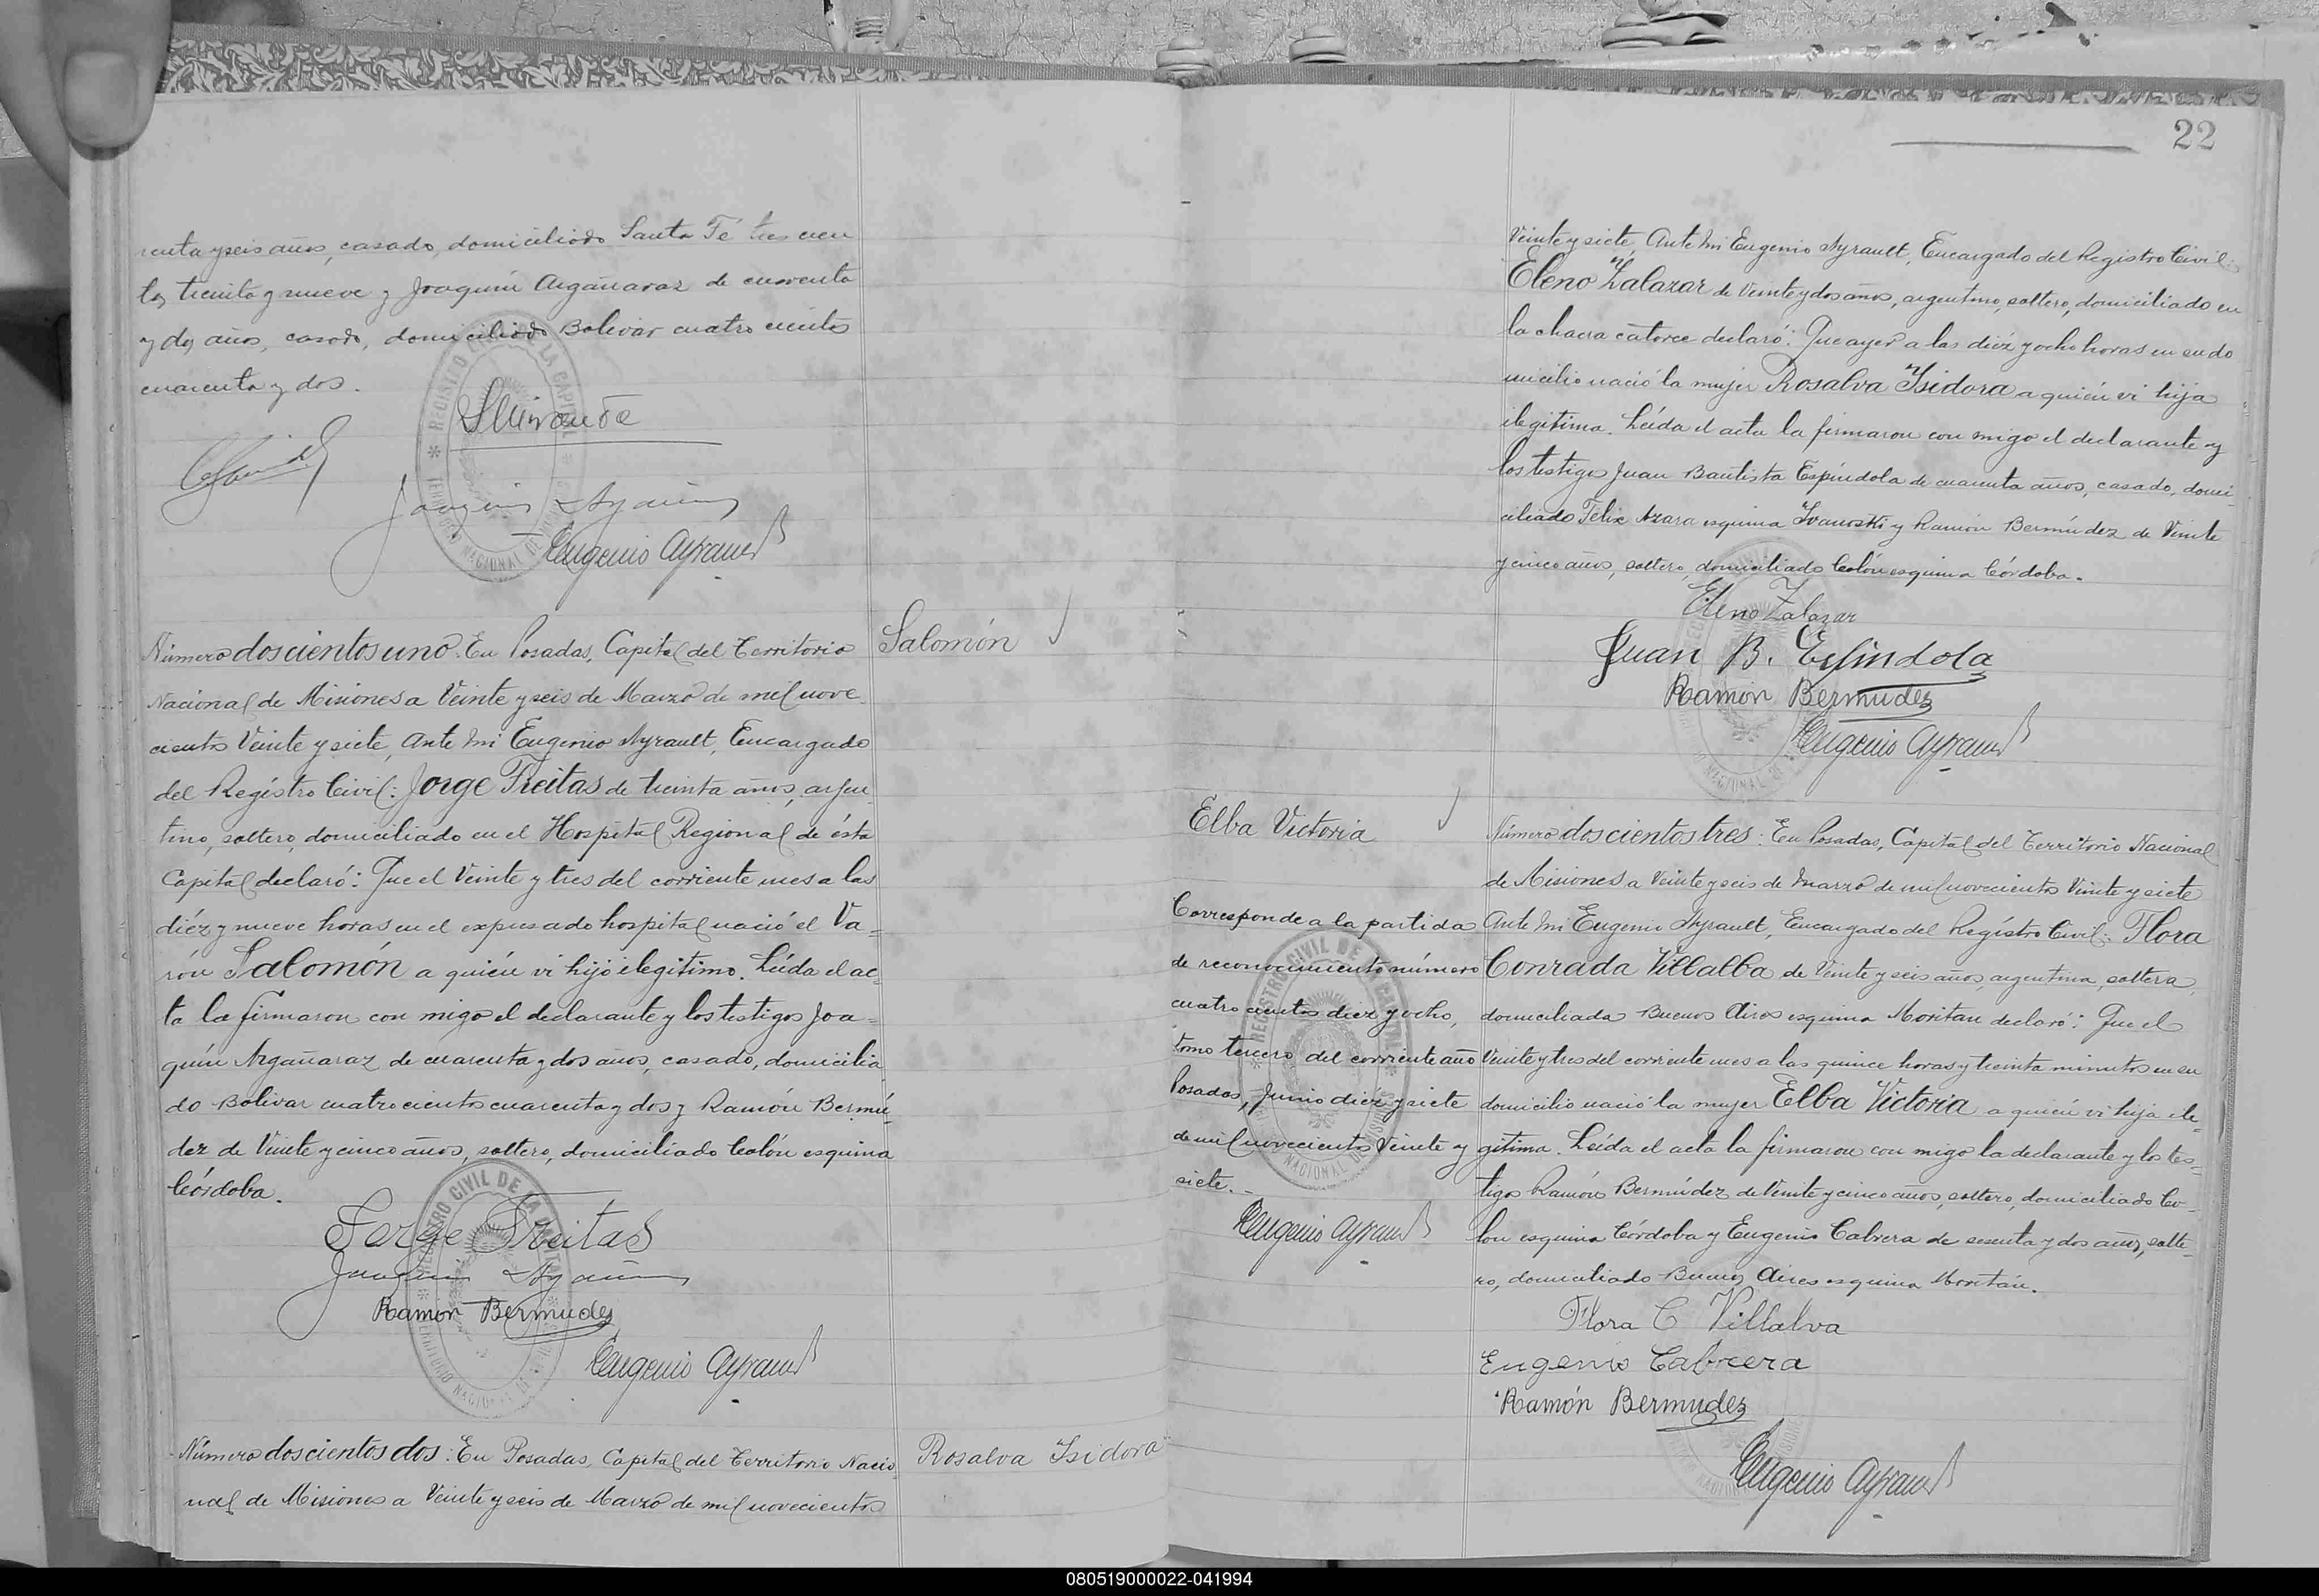 renta y seis años, casado, domiciliado Santa Fé tres cien
tos treinta y nueve y Joaquín Argañaraz de cuarenta
y dos años, casado, domiciliado Bolivar cuatro cientos
cuarenta y dos.
Eugenio Ayrault
Número doscientos uno: En Posadas, Capital del Territorio
Nacional de Misiones a Veinte y seis de Marzo de mil nove
cientos Veinte y siete, Ante mi Eugenio Ayrault, Encargado
del Registro Civil: Jorge Freitas de treinta años, arjen
tino, soltero, domiciliado en el Hospital Regional de ésta
Capital declaró: Que el Veinte y tres del corriente mes a las
diéz y nueve horas en el expresado hospital nació el Va=
rón Salomón a quién vi hijo ilegitimo. Leída el ac=
ta la firmaron con migo el declarante y los testigos Joa=
quín Argañaraz de cuarenta y dos años, casado, domicilia
do Bolivar cuatrocientos cuarenta y dos y Ramón Bermú-
dez de Veinte y cinco años, soltero, domiciliado Colón esquina
Córdoba.
Salomón
Jorge Freitas
Ramón Bermudez
Eugenio Ayrault
Número doscientos dos: En Posadas, Capital del Territorio Nacio
nal de Misiones a Veinte y seis de Marzo de mil novecientos
Rosalva Isidora
22
Veinte y siete, Ante mi Eugenio Ayrault, Encargado del Registro Civil:
Eleno Zalazar de Veinte y dos años, argentino, soltero, domiciliado en
la chacra catorce declaró: Que ayer a las diéz y ocho horas en su do
micilio nació la mujer Rosalva Isidora a quién vi hija
ilegitima. Leída el acta la firmaron con migo el declarante y
los testigos Juan Bautista Espíndola de cuarenta años, casado, domi-
ciliado Félix Azara esquina Ivanoski y Ramón Bermúdez de Veinte
y cinco años, soltero, domiciliado Colón esquina Córdoba.
Eleno Zalazar
Juan B. Espindola
Ramón Bermudez
Eugenio Ayrault
Elba Victoria
Corresponde a la partida
de reconocimiento número
cuatro cientos diez y ocho,
tomo tercero del corriente año
Posadas, Junio diéz y siete
de mil novecientos Veinte y
siete.-
Eugenio Ayrault
Número doscientos tres: En Posadas, Capital del Territorio Nacional
de Misiones a Veinte y seis de Marzo de mil novecientos Veinte y siete
Ante mi Eugenio Ayrault, Encargado del Registro Civil: Flora
Conrada Villalba de Veinte y seis años, argentina, soltera,
domiciliada Buenos Aires esquina Moritan declaró: Que el
Veinte y tres del corriente mes a las quince horas y treinta minutos en su
domicilio nació la mujer Elba Victoria a quién vi hija ile-
gitima. Leída el acta la firmaron con migo la declarante y los tes=
tigos Ramón Bermúdez de Veinte y cinco años, soltero, domiciliado Co-
lon esquina Córdoba y Eugenio Cabrera de sesenta y dos años, solte-
ro, domiciliado Buenos Aires esquina Moritán.
Flora C Villalva
Eugenio Cabrera
Ramón Bermudez
Eugenio Ayrault
080519000022-041994